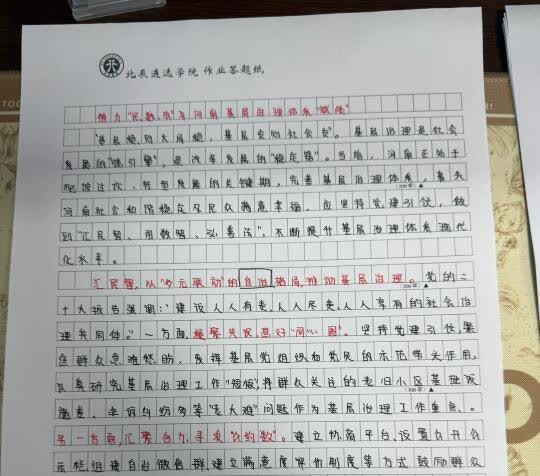 北辰遴选学院 作业答题纸
借力“民数法”为河南基层治理体系“赋能”
“基层稳则大局稳,基层安则社会安”。基层治理是社会
发展的“强引擎”,是改革发展的“稳定器”。当前,河南正处于
爬坡过坎、转型发展的关键期,完善基层治理体系,事关
(100字)▲
河南社会和谐稳定及民众满意幸福。应坚持党建引领,做
到“汇民智、用数智、弘善法”,不断提升基层治理体系现代
化水平。
汇民智,以“多元联动”的自治格局,推动基层治理。党的二
(200字)▲
十大报告强调:“建设人人有责、人人尽责、人人享有的社会治
理共同体。”一方面,凝聚共识,画好“同心圆”。坚持党建引领,聚
焦群众急难愁盼,发挥基层党组织和党员的示范带头作用,
认真研究基层治理工作“短板”,将群众关注的老旧小区基础设
(300字)▲
施差、来访纠纷多等“老大难”问题作为基层治理工作重点。
另一方面,汇聚合力,寻求“公约数”。建立协商平台,设置公开公
示栏,组建自治微信群,建立满意度评价制度等方式鼓励群众